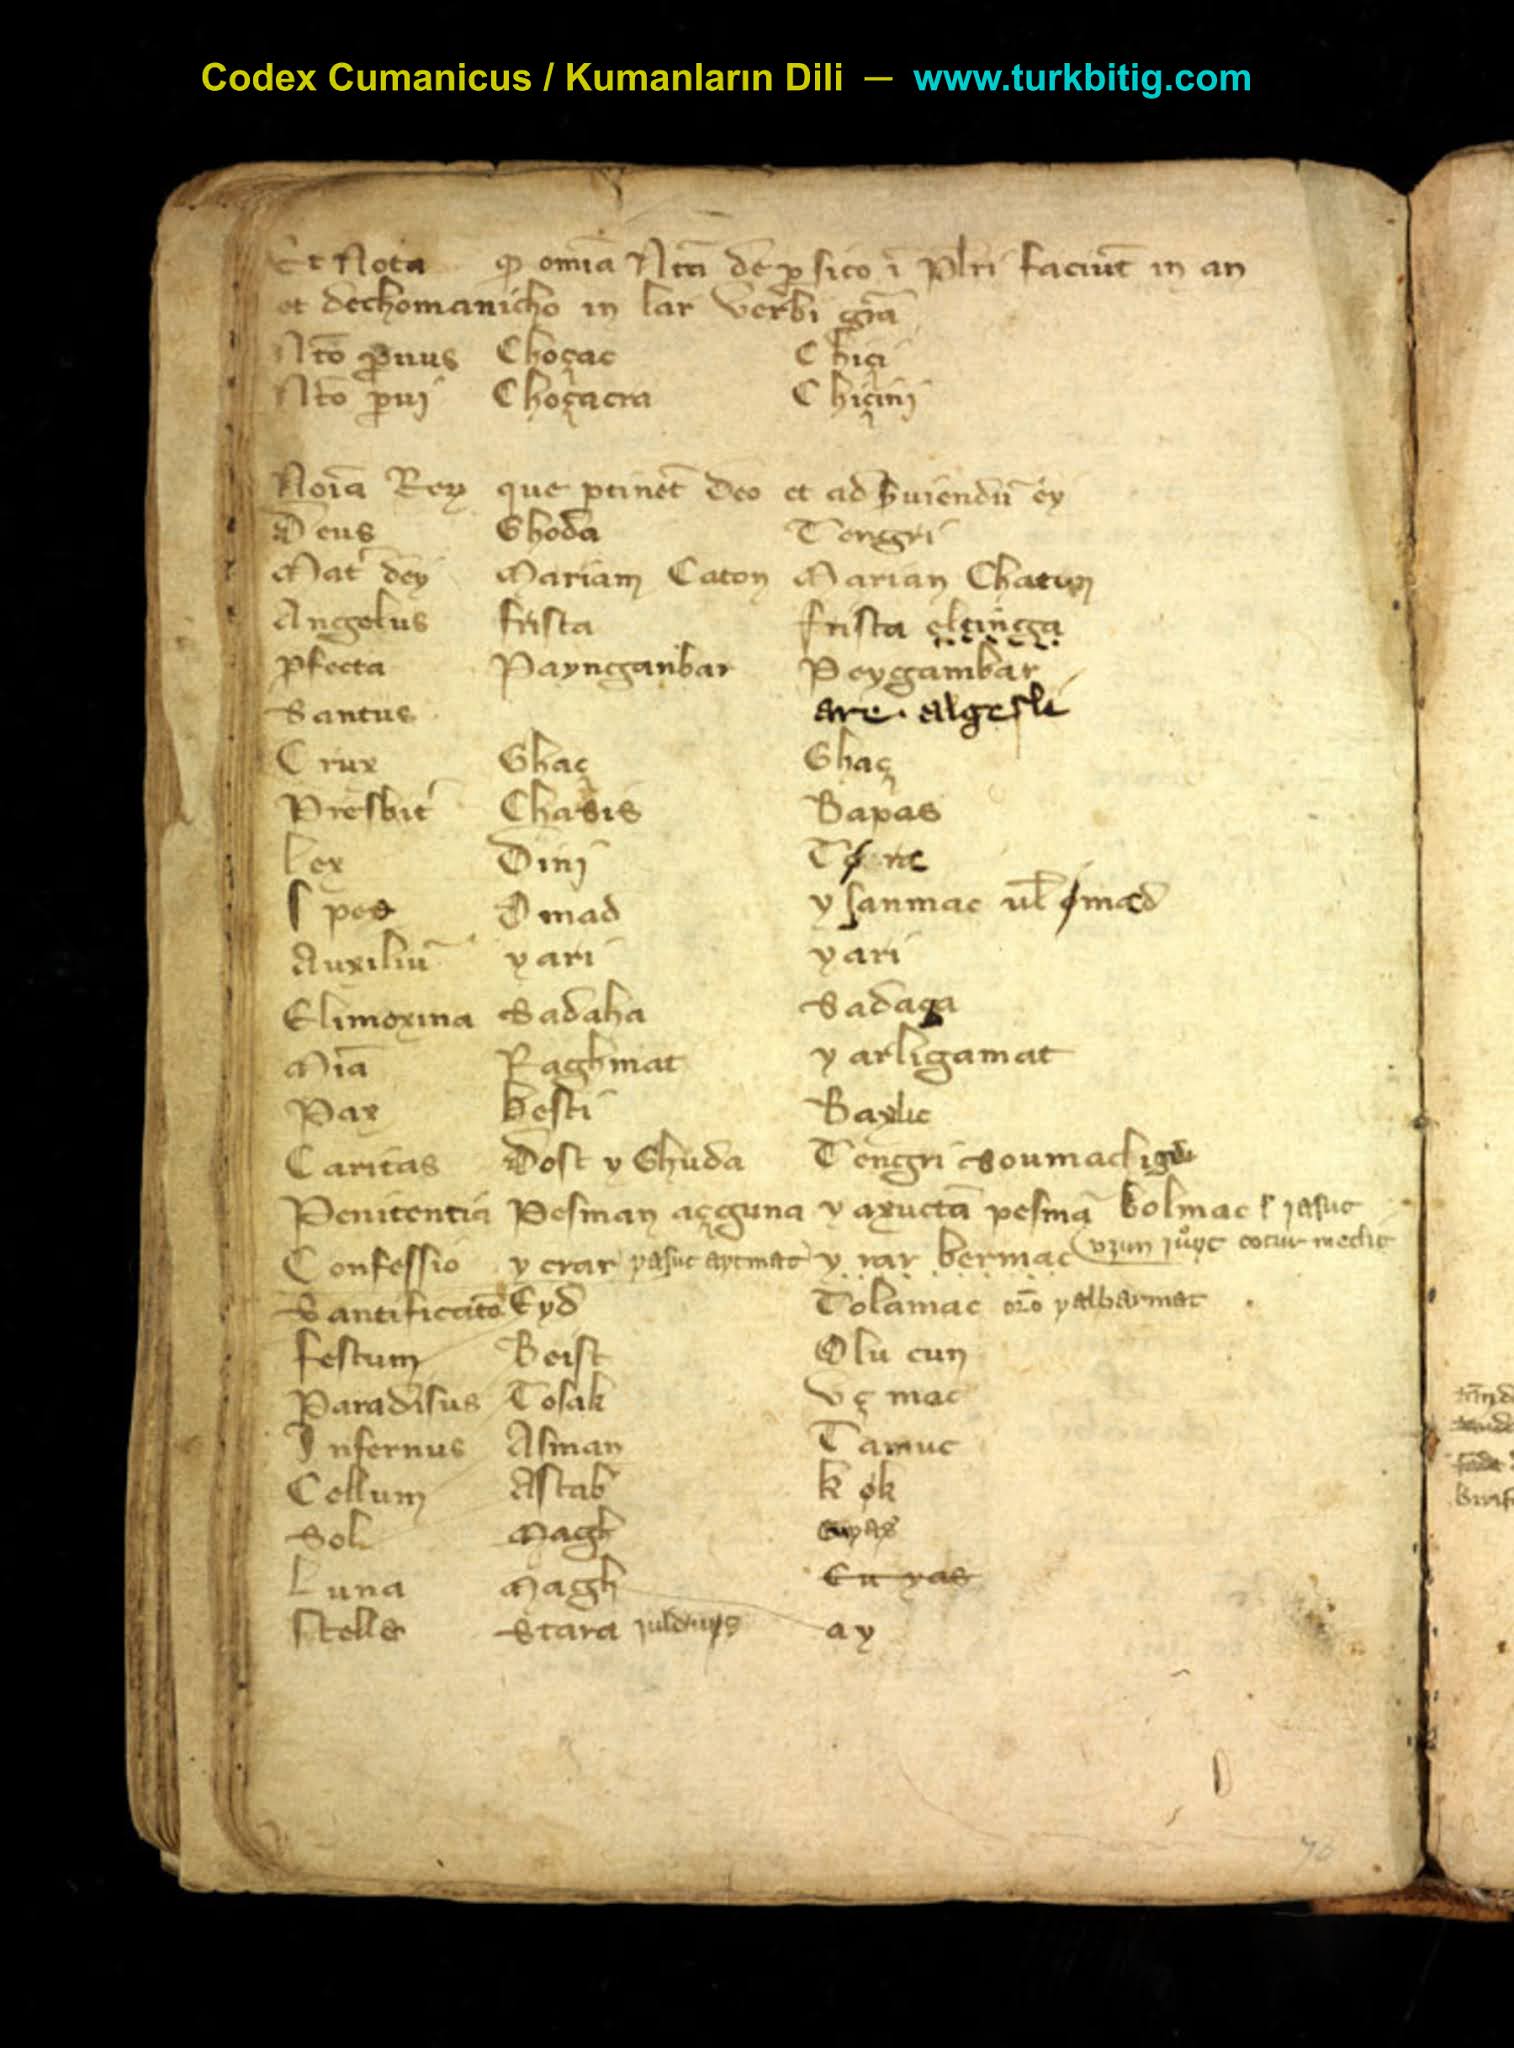 Codex Cumanicus / Kumanların Dili — www.turkbitig.com
Et Nota ꝙ omīa Ntā de ꝑsico ī plr̄i faciūt in an
et dechomanicho in lar verbi grā
Ntō Choçac Chiçi
Ntō Choçacra Chiçinj
Noīa Rey que ꝑtinēt deo et ad ẜuiendū ey
Deus Ghoda Tengri
Mat' dey Mariam Caton Marian Chatun
Angelus frista frista eltincga
ꝓfecta Payncganbar Peygambar
Santus are algesli
Crux Ghaç Ghaç
Presbit' Chasis Bapas
Lex Dinj
Spes Omad ysanmac ul' omad
Auxiliū yari yari
Elimoxina Sadaha Sadaga
Mīa Raghmat yarligamat
Pax besti Bazlic
Caritas Dost y Ghuda Tengri soumac
Penitentia Pesman açguna yaxuctā pesmā bolmac
Confessio y crar yasuc aytmac y rar bermac
Santificatō Eyd Tolamac yalbarmac
festum Beist Olu cun
Paradisus Tosak Vç mac
Infernus Asman Tamuc
Cellum Astab kok
Sol Magh cuyas
Luna Magh Cu yas
Stelle Stara ay